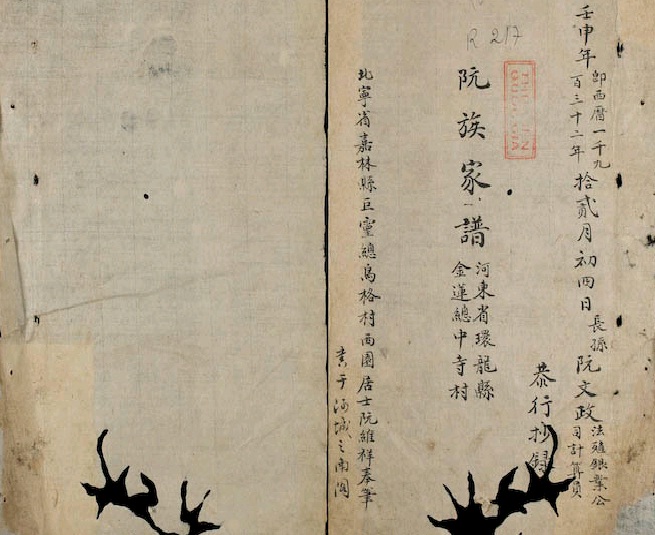 壬申年即西曆一千九百三十二年拾貳月初四日長孫阮文政法殖銀業公司計算員
恭行抄錄
R 217
阮族家譜河東省環龍縣金蓮總中寺村
北寧省嘉林縣巨靈總烏格村西園居士阮維祥奉筆
書于河城之南閣